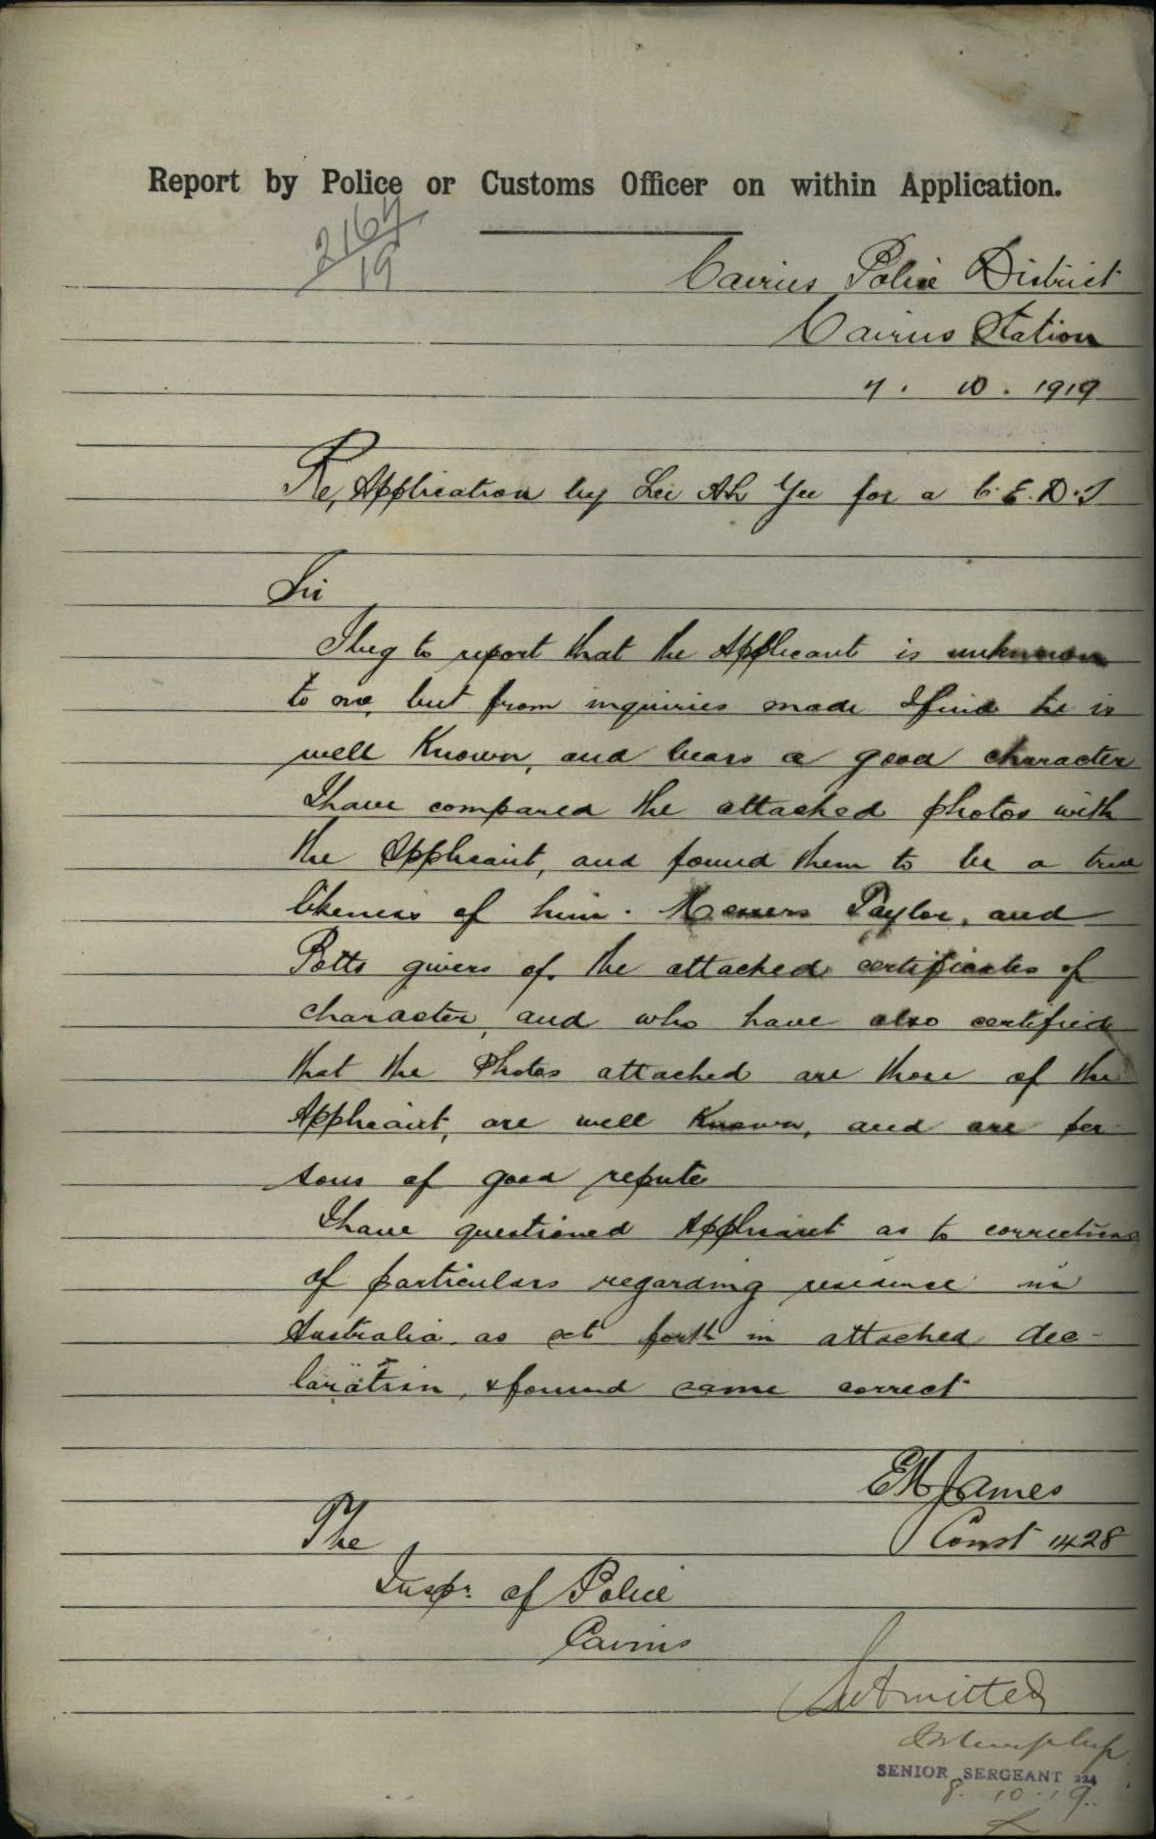 Report by Police or Customs Officer on within Application.
2164
19
Cairns Police District
Cairns Station
7. 10. 1919
Re, Application by Lee Ah Yee for a C.E.D.T
Sir
I beg to report that the Applicant is unknown
to me, but from inquiries made I find he is
well Known, and bears a good character
I have compared the attached photos with
the Applicant, and found them to be a true
likeness of him. Messers Taylor, and
Potts givers of the attached certificates of
character, and who have also certified
that the Photos attached are those of the
Applicant, are well Known, and are per
sons of good repute
I have questioned Applicant as to correctness
of particulars regarding residence in
Australia as set forth in attached dec-
laration, & found same correct
EH James
Const 1428
The
Inspr. of Police
Cairns
Submitted
SENIOR SERGEANT 224
8. 10. 19.